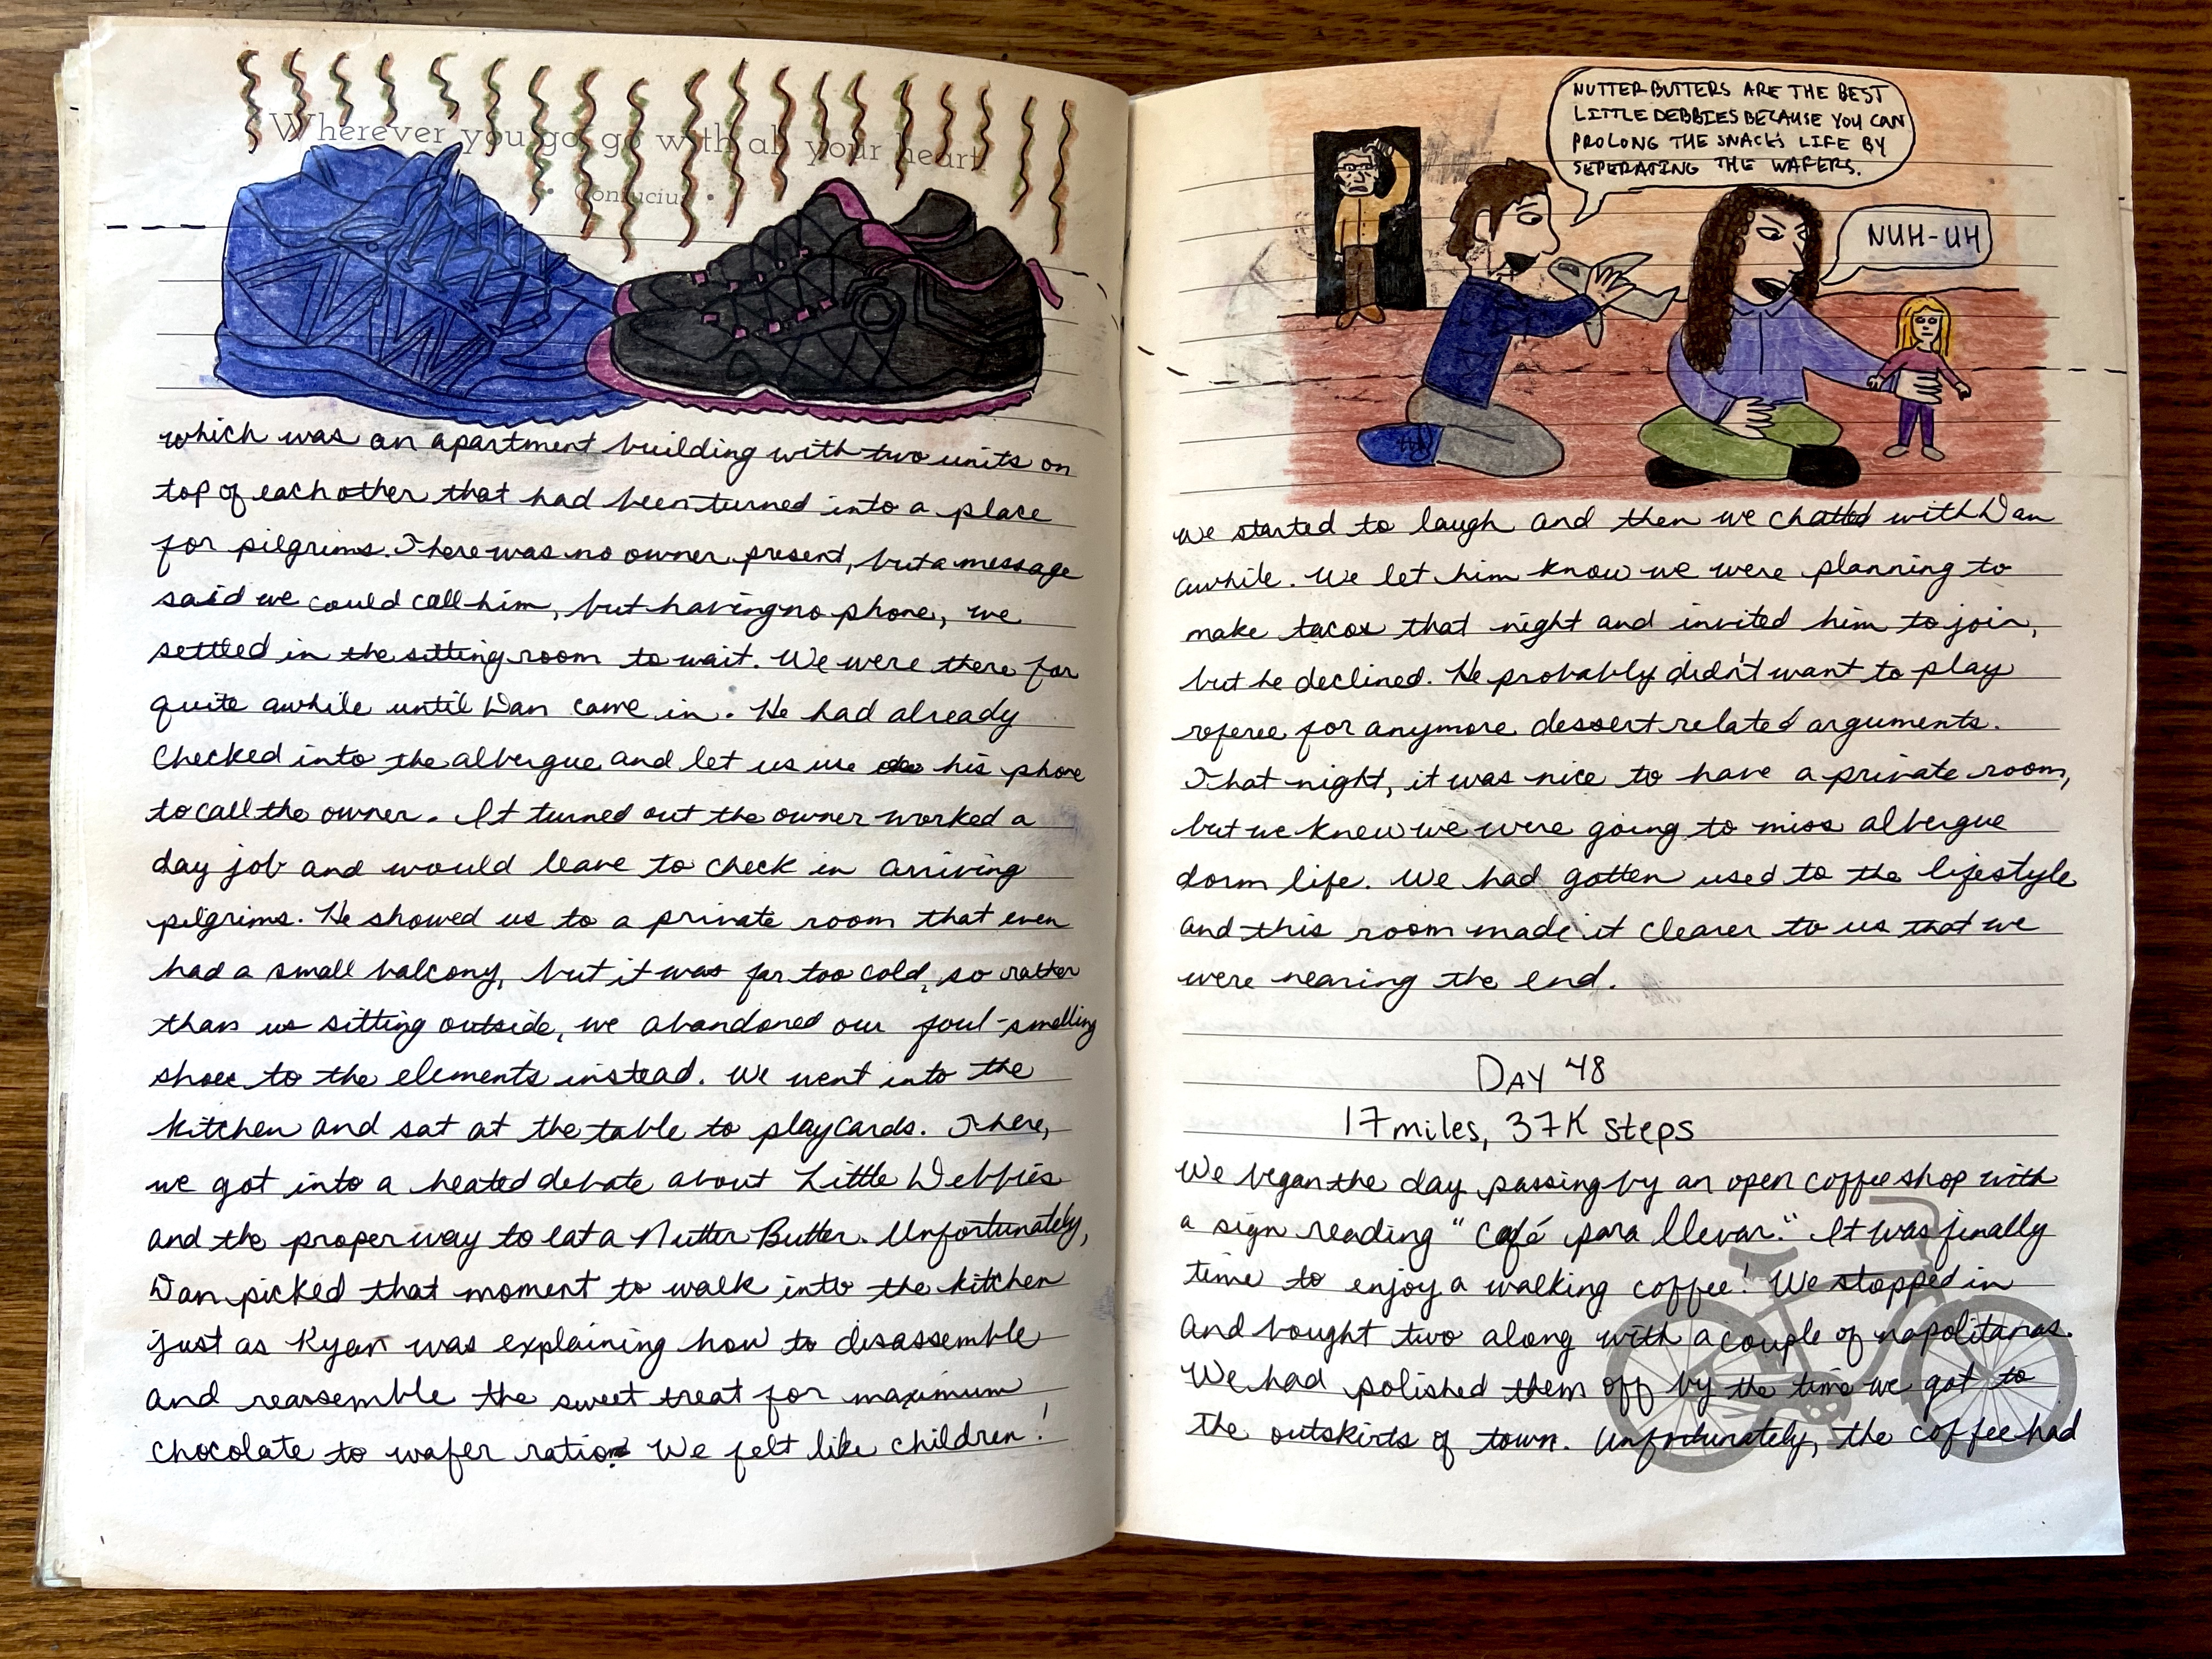 Wherever you go, go with all your heart
• Confucius •
which was an apartment building with two units on
top of each other that had been turned into a place
for pilgrims. There was no owner present, but a message
said we could call him, but having no phone, we
settled in the sitting room to wait. We were there for
quite awhile until Dan came in. He had already
checked into the albergue and let us use his phone
to call the owner. It turned out the owner worked a
day job and would leave to check in arriving
pilgrims. He showed us to a private room that even
had a small balcony, but it was far too cold, so rather
than us sitting outside, we abandoned our foul-smelling
shoes to the elements instead. We went into the
kitchen and sat at the table to play cards. There,
we got into a heated debate about Little Debbies
and the proper way to eat a Nutter Butter. Unfortunately,
Dan picked that moment to walk into the kitchen
just as Ryan was explaining how to disassemble
and reassemble the sweet treat for maximum
chocolate to wafer ratio. We felt like children!
NUTTER BUTTERS ARE THE BEST
LITTLE DEBBIES BECAUSE YOU CAN
PROLONG THE SNACK'S LIFE BY
SEPERATING THE WAFERS.
NUH-UH
We started to laugh and then we chatted with Dan
awhile. We let him know we were planning to
make tacos that night and invited him to join,
but he declined. He probably didn't want to play
referee for anymore dessert related arguments.
That night, it was nice to have a private room,
but we knew we were going to miss albergue
dorm life. We had gotten used to the lifestyle
and this room made it clearer to us that we
were nearing the end.
DAY 48
17 miles, 37K steps
We began the day passing by an open coffee shop with
a sign reading "café para llevar." It was finally
time to enjoy a walking coffee! We stopped in
and bought two along with a couple of napolitanas.
We had polished them off by the time we got to
the outskirts of town. Unfortunately, the coffee had